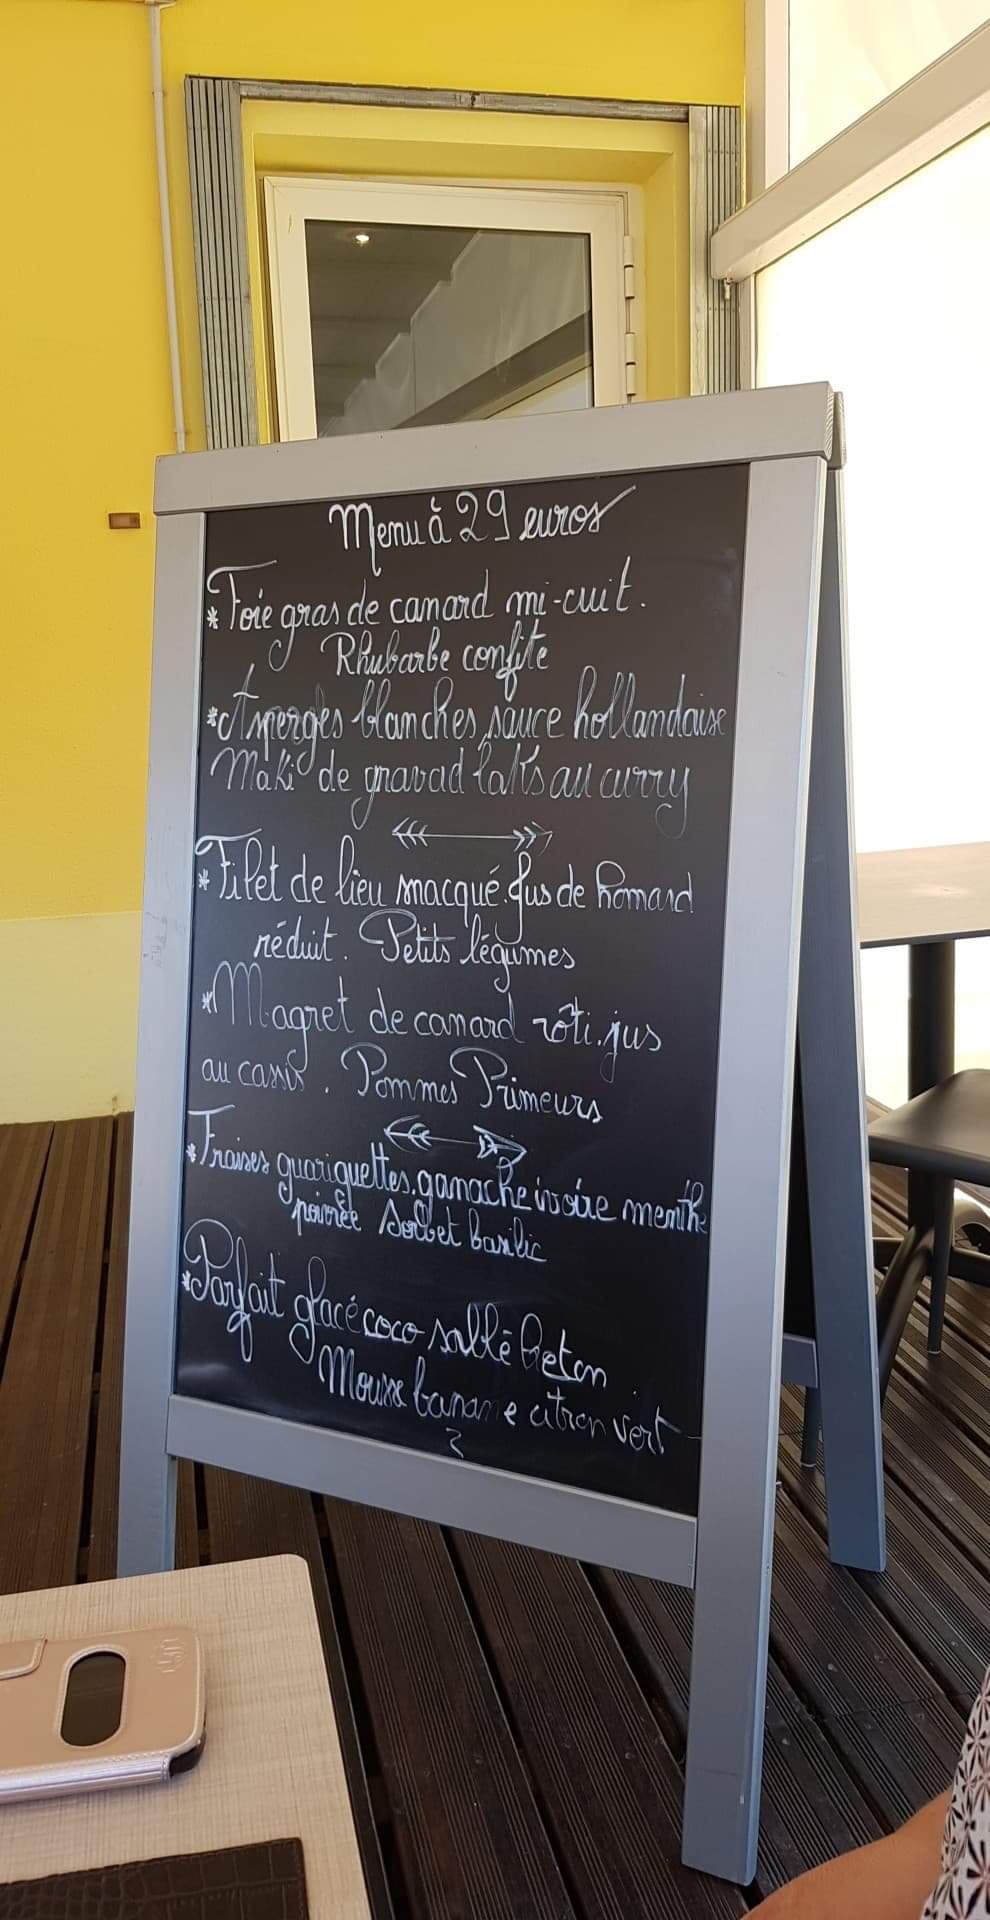 Menu à 29 euros
* Foie gras de canard mi-cuit.
Rhubarbe confite
* Asperges blanches, sauce hollandaise
Maki de gravad laks au curry
* Filet de lieu macqué. Jus de homard
réduit. Petits légumes
* Magret de canard rôti. jus
au cassis. Pommes Primeurs
* Fraises guariguettes. ganache ivoire menthe
poivrée Sorbet basilic
* Parfait glacé coco sablé breton
Mousse banane citron vert